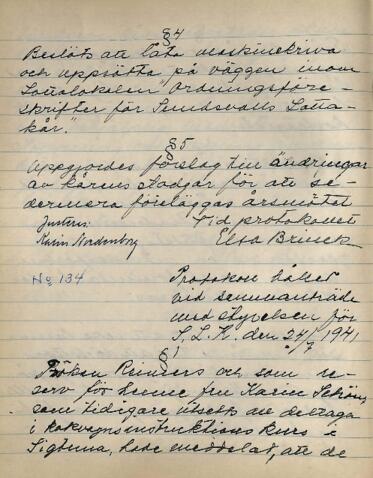 §4
Beslöts att låta maskinskriva
och uppsätta på väggen inom
Lottalokalen "Ordningsföre-
skrifter för Sundsvalls Lotta-
kår."
§5
Uppgjordes förslag till ändringar
av kårens stadgar för att se-
dermera föreläggas årsmötet
Justeras: Vid protokollet
Karin Nordenborg Elsa Brinck
No 134
Protokoll hållet
vid sammanträde
med styrelsen för
S. L. K. den 24/7 1941
§1
Fröken Reimers och som re-
serv för henne fru Karin
som tidigare utsetts att deltaga
i kokvagnsinstruktions kurs i
Sigtuna, hade meddelat, att de